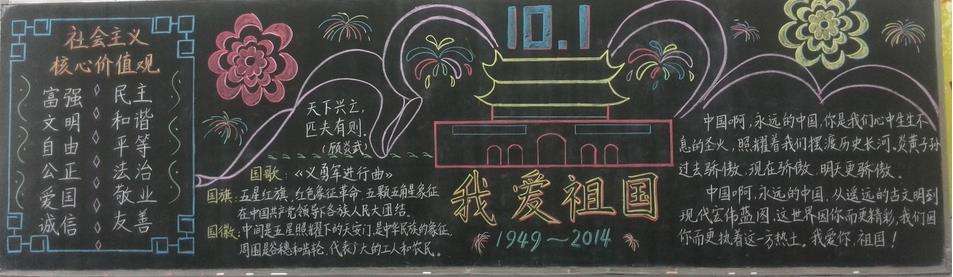 社会主义
核心价值观
富强 民主
文明 和谐
自由 平等
公正 法治
爱国 敬业
诚信 友善
天下兴亡,
匹夫有则.
(顾炎武)
国歌:《义勇军进行曲》
国旗:五星红旗,红色象征革命,五颗五角星象征
在中国共产党领导下各族人民大团结.
国徽:中间是五星照耀下的天安门,是中华民族的象征,
周围是谷穗和齿轮,代表广大的工人和农民。
10.1
我爱祖国
1949~2014
中国啊,永远的中国,你是我们心中生生不
息的圣火,照耀着我们摆渡历史长河.炎黄子孙
过去骄傲、现在骄傲、明天更骄傲。
中国啊,永远的中国,从遥远的古文明到
现代宏伟蓝图.这世界因你而更精彩,我们因
你而更执着这一方热土。我爱你,祖国!